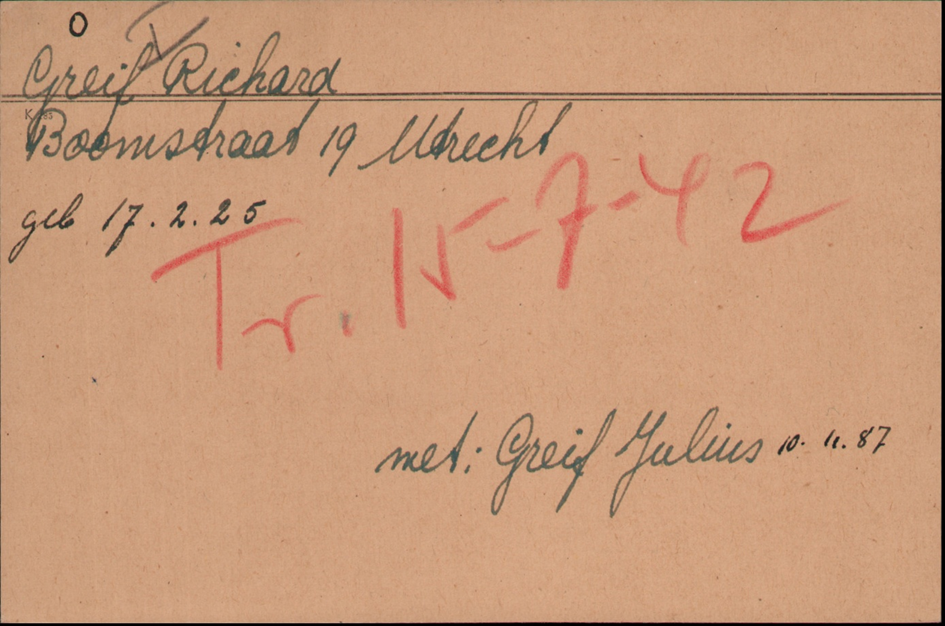 O
Greif Richard
Boomstraat 19 Utrecht
geb 17.2.25
Tr. 15-7-42
met: Greif Julius 10. 11. 87